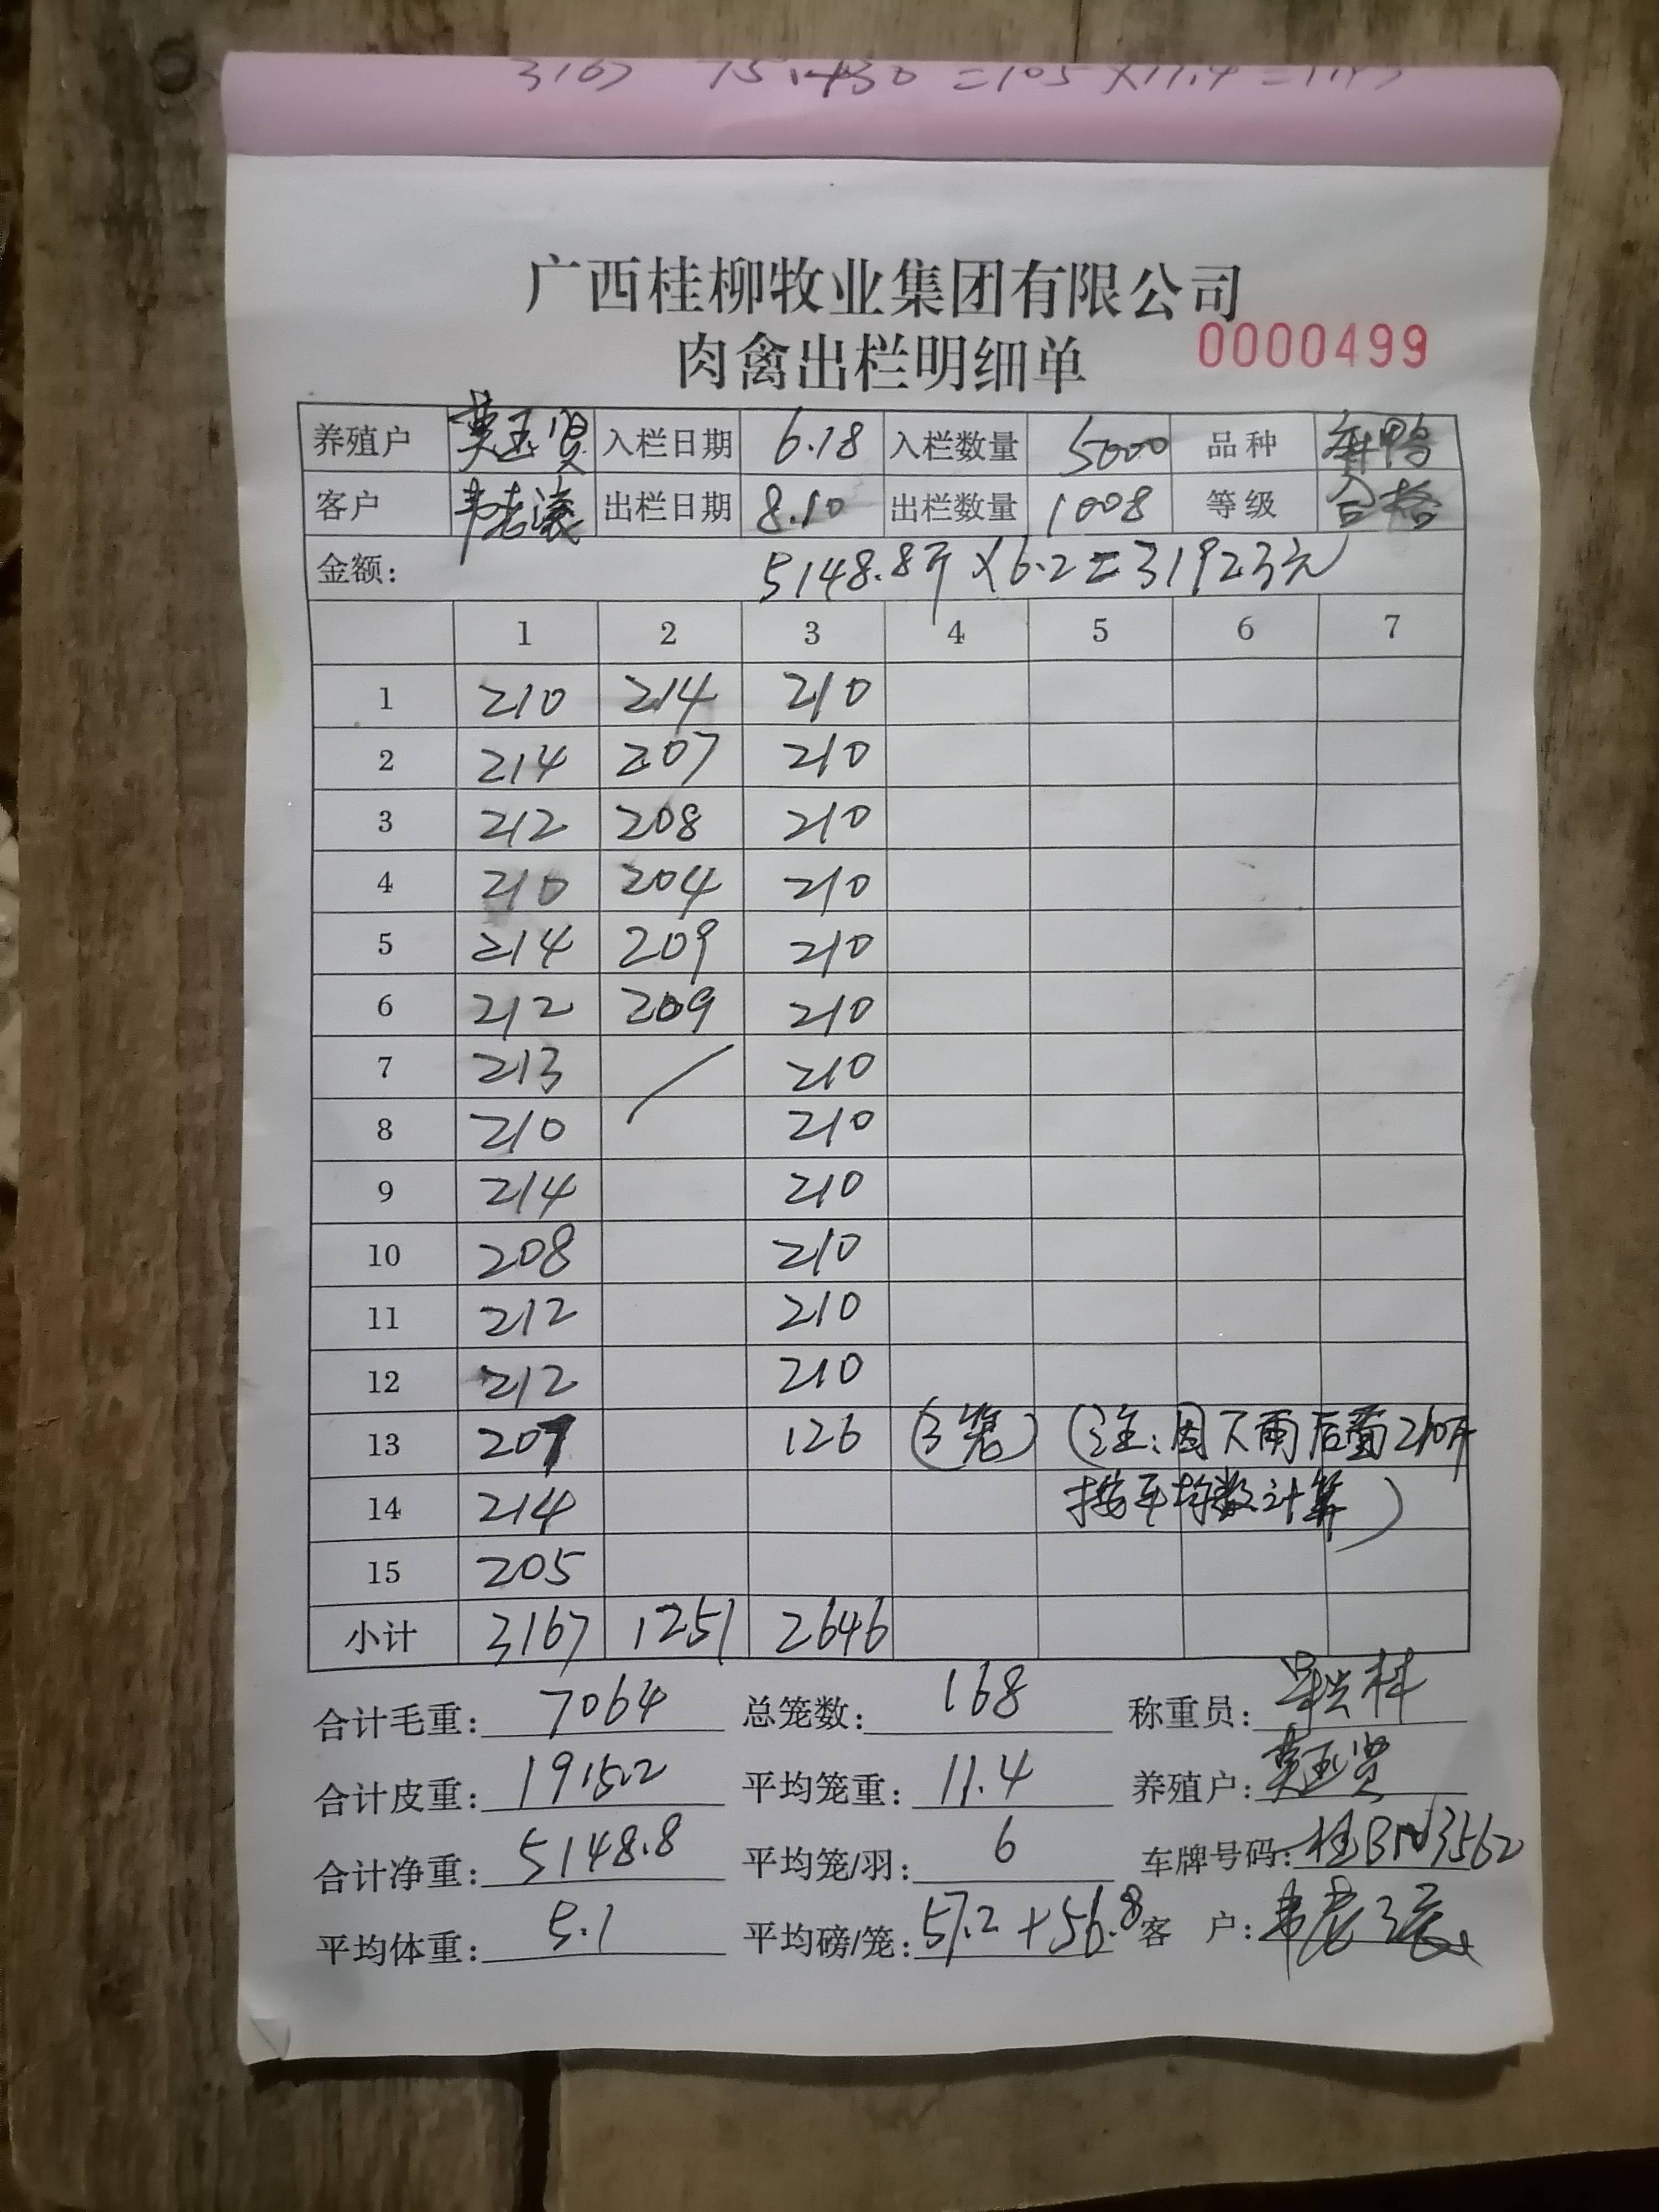 广西桂柳牧业集团有限公司
肉禽出栏明细单 0000499
养殖户 莫玉贤 入栏日期 6.18 入栏数量 5000 品种 麻鸭
客户 韦 出栏日期 8.10 出栏数量 1008 等级 合格
金额: 5148.8斤×6.2=31923元
1 2 3 4 5 6 7
1 210 214 210
2 214 207 210
3 212 208 210
4 210 204 210
5 214 209 210
6 212 209 210
7 213 / 210
8 210 210
9 214 210
10 208 210
11 212 210
12 212 210
13 207 126 (3笼) (注:因下雨后面210斤
14 214 按平均数计算)
15 205
小计 3167 1251 2646
合计毛重: 7064 总笼数: 168 称重员:
合计皮重: 1915.2 平均笼重: 11.4 养殖户: 莫玉贤
合计净重: 5148.8 平均笼/羽: 6 车牌号码: 桂BN3562
平均体重: 5.1 平均磅/笼: 57.2+56.8 客户: 韦